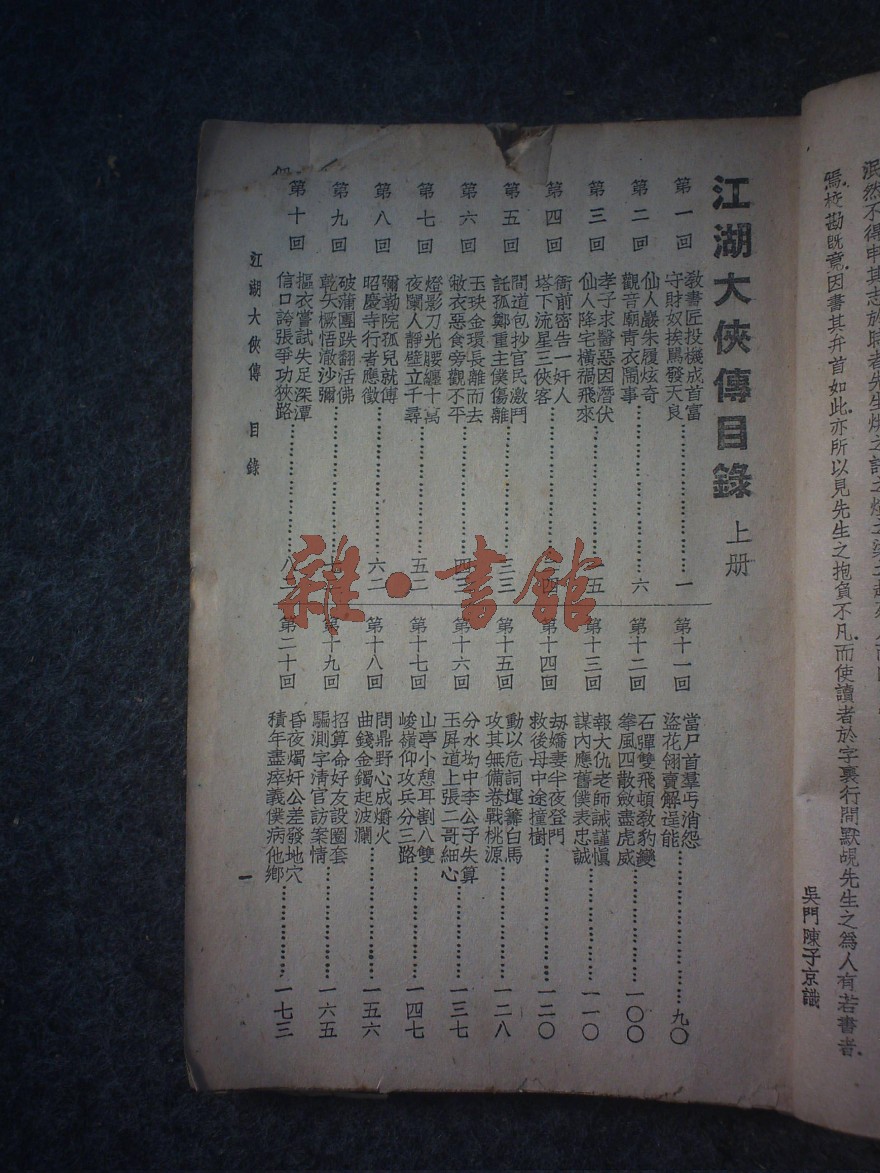 爲、校勘旣竟、因書其弁首如此、亦所以見先生之抱負不凡、而使讀者於字裏行間默覘先生之爲人有若書者、
吳門陳子京識
江湖大俠傳目錄 上册
第一回 教書匠投機成首富
守財奴挨罵發天良 一
第二回 仙人巖朱履炫奇
觀音廟靑衣鬧事 六
第三回 孝子求醫惡因潛伏
仙人降宅橫禍飛來 五
第四回 衙前密告一奸人
塔下流星三俠客
第五回 間道包抄官民激鬥
託孤鄭重主僕傷離 三三
第六回 玉玦金環長離而去
敝衣惡食旁觀不平 四三
第七回 燈影刀光腰纏十萬
夜闌人靜壁立千尋 五二
第八回 彌勒院孤兒就傅
昭慶寺行者應徵 六二
第九回 破蒲團跌翻活佛
乾矢橛悟澈沙彌 七
第十回 摳衣嘗試失足深潭
信口誇張爭功狹路 八
第十一回 當尸首羣丐消怨
盜花翎賣解逞能 九〇
第十二回 石彈雙飛頓教豹變
攀風四散斂盡虎威 一〇〇
第十三回 報大仇老師誡謹愼
謀內應舊僕表忠誠 一一〇
第十四回 劫嬌妻半夜登門
救後母中途撞樹 一二〇
第十五回 動以危詞運籌白馬
攻其無備卷戰桃源 一二八
第十六回 分水坳中李公子失算
玉屏道上張二哥細心 一三七
第十七回 山亭小憩耳割八雙
峻嶺仰攻兵分三路 一四七
第十八回 問鼎野心成爝火
曲錢金鐲起波瀾 一五六
第十九回 招算命好友設圈套
騙測字淸官訪案情 一六五
第二十回 昏夜燭奸公差發地穴
積年盡瘁義僕病他鄕 一七三
江湖大俠傳 目錄
一
雜·書館